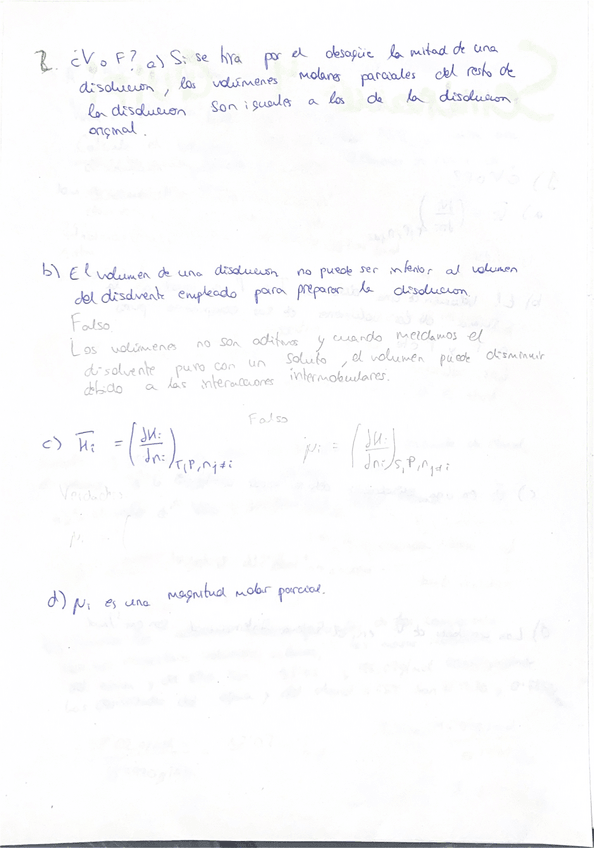 2. ¿V o F? a) Si se tira por el desagüe la mitad de una
disolución, los volúmenes molares parciales del resto de
la disolución son iguales a los de la disolución
original.
b) El volumen de una disolución no puede ser inferior al volumen
del disolvente empleado para preparar la disolución
Falso
Los volúmenes no son aditivos y cuando mezclamos el
disolvente puro con un soluto, el volumen puede disminuir
debido a las interacciones intermoleculares.
Falso
c) H̅i = (dHi/dni)T,P,nj≠i μi = (dHi/dni)S,P,nj≠i
μi = (
d) μi es una magnitud molar parcial.